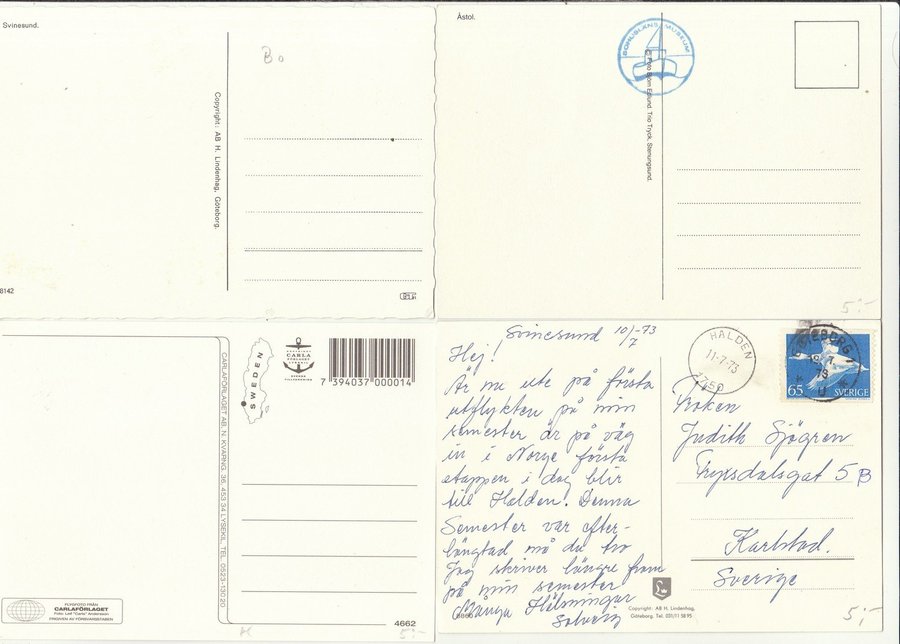 Svinesund.
Bo
Copyright: AB H. Lindenhag, Göteborg.
8142
Åstol.
BOHUSLÄNS MUSEUM
Foto Björn Edlund. Trio Tryck, Stenungsund.
5:-
SWEDEN
CARLA
7 394037 000014
CARLAFÖRLAGET AB, N. KVARNG. 36, 453 34 LYSEKIL, TEL. 0523-130 20
FLYGFOTO FRÅN
CARLAFÖRLAGET
Foto: Leif "Carla" Andersson
FRIGIVEN AV FÖRSVARSSTABEN
4662
5:-
Svinesund 10/7-73
Hej!
Är nu ute på första
utflykten på min
semester är på väg
in i Norge första
etappen i dag blir
till Halden. Denna
Semester var efter-
längtad må du tro
Jag skriver längre fram
på min semester
Många Hälsningar
Solveig
HALDEN
11-7-73
1750
GÖTEBORG 1
73
65 SVERIGE
Fröken
Judith Sjögren
Fryxdalsgat 5 B
Karlstad.
Sverige
Copyright: AB H. Lindenhag,
Göteborg. Tel. 031/11 58 95
5:-